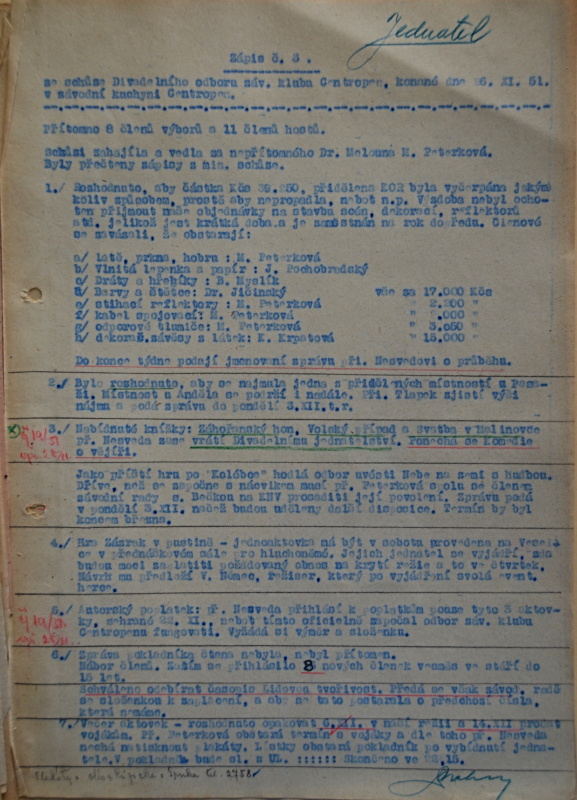 Jednatel
Zápis č. 3.
se schůze Divadelního odboru záv. klubu Centropen, konané dne 26. XI. 51.
v závodní kuchyni Centropen.
Přítomno 8 členů výborů a 11 členů hostů.
Schůzi zahájila a vedla za nepřítomného Dr. Melouna M. Peterková.
Byly přečteny zápisy z min. schůze.
1./ Rozhodnuto, aby částka Kčs 39.250, přidělena KOR byla vyčerpána jakým
koliv způsobem, prostě aby nepropadla, neboť n.p. Výzdoba nebyl ocho-
ten přijmout naše objednávky na stavbu scén, dekorací, reflektorů
atd. jelikož jest krátká doba a je zaměstnán na rok dopředu. Členové
se zavázali, že obstarají:
a/ latě, prkna, hobru : M. Peterková
b/ Vlnitá lepenka a papír : J. Pochobradský
c/ Dráty a hřebíky : B. Myslík
d/ Barvy a štětce: Dr. Jičínský vše za 17.000 Kčs
e/ stíhací reflektory : M. Peterková " 2.200 "
f/ kabel spojovací: M. Peterková " 1.000 "
g/ odporové tlumiče: M. Peterková " 3.050 "
h/ dekorač. závěsy z látek: K. Krpatová " 15.000 "
Do konce týdne podají jmenovaní zprávu př. Nesvedovi o průběhu.
2./ Bylo rozhodnuto, aby se najmula jedna z přidělených místností u Pasá-
ží. Místnost u Anděla se podrží i nadále. Př. Tlapek zjistí výši
nájmu a podá zprávu do pondělí 3.XII.t.r.
3./ Nabídnuté knížky: Záhořanský hon, Voloký případ a Svatba v Malinovce
př. Nesveda zase vrátí Divadelnímu jednatelství. Ponechá se Komedie
o vějíři.
Jako příští hru po "Kolébce" hodlá odbor uvésti Nebe na zemi s hudbou.
Dříve, než se započne s nácvikem musí př. Peterková spolu se členem
závodní rady s. Bečkou na KNV prosaditi její povolení. Zprávu podá
v pondělí 3.XII. načež budou uděleny další disposice. Termín by byl
koncem března.
4./ Hra Zázrak v pustině - jednoaktovka má být v sobotu provedena na Vesele
ce v přednáškovém sále pro hluchoněmé. Jejich jednatel se vyjádří, zda
budou moci zaplatiti požadovaný obnos na krytí režie a to ve čtvrtek.
Návrh mu předloží V. Němec, režiser, který po vyjádření svolá event.
herce.
5./ Autorský poplatek: př. Nesveda přihlásí k poplatkům pouze tyto 3 aktov-
ky, sehrané 22. XI., neboť tímto oficielně započal odbor záv. klubu
Centropenu fungovati. Vyžádá si výměr a složenku.
6./ Zpráva pokladníka čtena nebyla, nebyl přítomen.
Nábor členů. Zatím se přihlásilo 8 nových členek vesměs ve stáří do
15 let.
Schváleno odebírat časopis Lidovou tvořivost. Předá se však závod. radě
se složenkou k zaplacení, a aby se tato postarala o předchozí čísla,
která nemáme.
7./ Večer aktovek - rozhodnuto opakovat 6.XII. v naší režii a 14.XII prodat
vojákům. Př. Peterková obstará termín s vojáky a dle toho př. Nesveda
nechá natisknout plakáty. Lístky obstará pokladník po vybídnutí jedna-
tele. V pokladně bude sl. z UL. :::::: Skončeno ve 22,15.